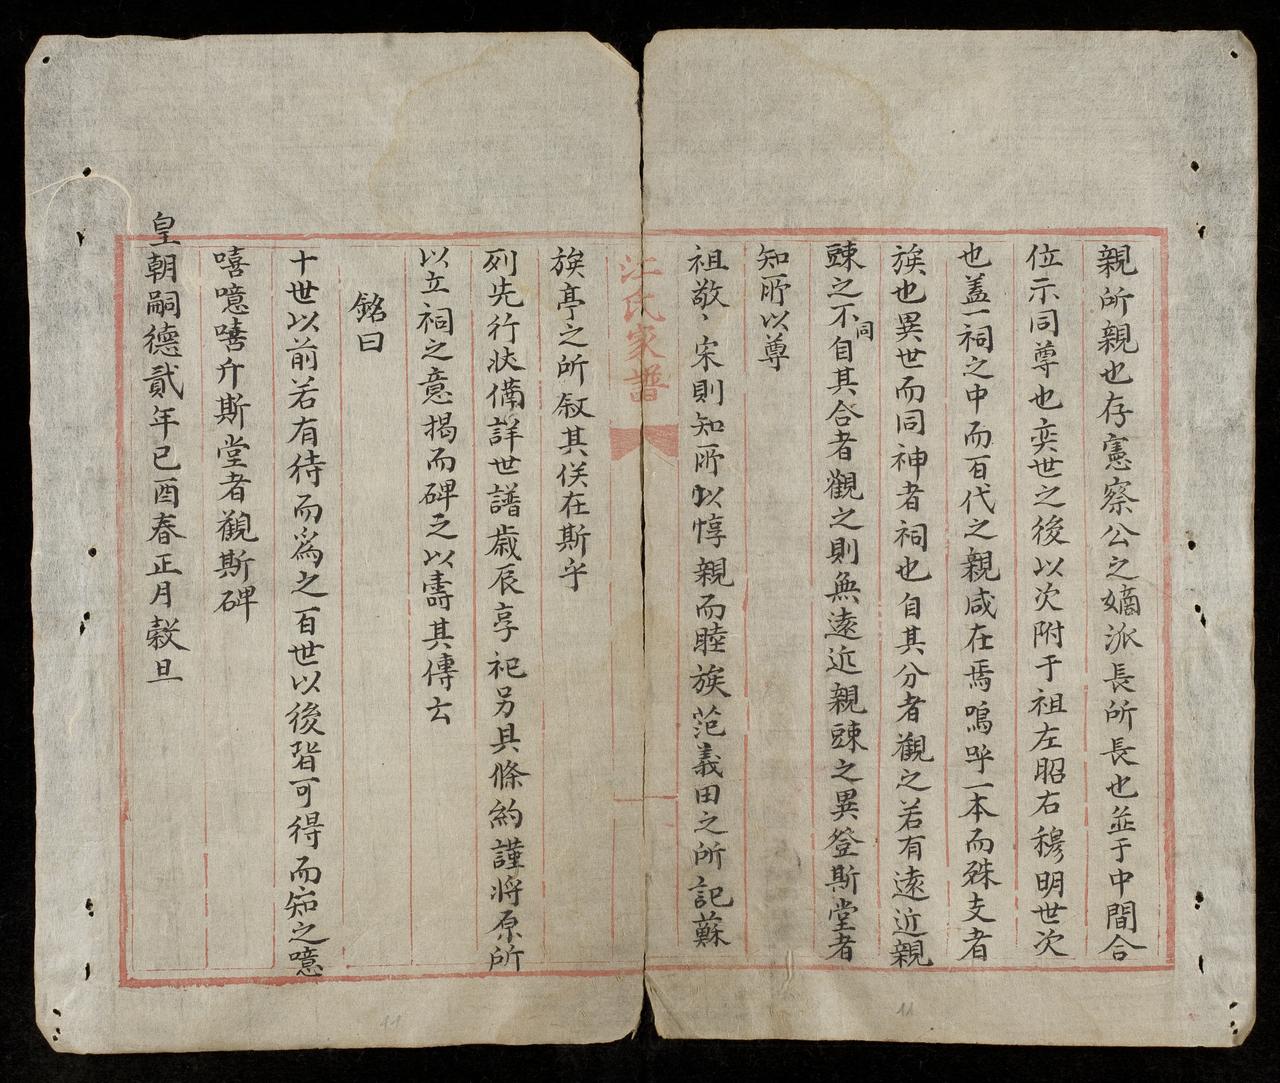 親所親也存憲察公之嫡派長所長也並于中間合
位示同尊也奕世之後以次附于祖左昭右穆明世次
也蓋一祠之中而百代之親咸在焉嗚呼一本而殊支者
族也異世而同神者祠也自其分者觀之若有遠近親
踈之不同自其合者觀之則無遠近親踈之異登斯堂者
知所以尊
祖敬々宋則知所以惇親而睦族范義田之所記蘇
江氏家譜
族亭之所叙其俟在斯乎
列先行狀備詳世譜歲辰享祀另具條約謹將原所
以立祠之意揭而碑之以壽其傳云
銘曰
十世以前若有待而爲之百世以後皆可得而知之噫
嘻噫嘻升斯堂者觀斯碑
皇朝嗣德貳年己酉春正月穀旦
11
11